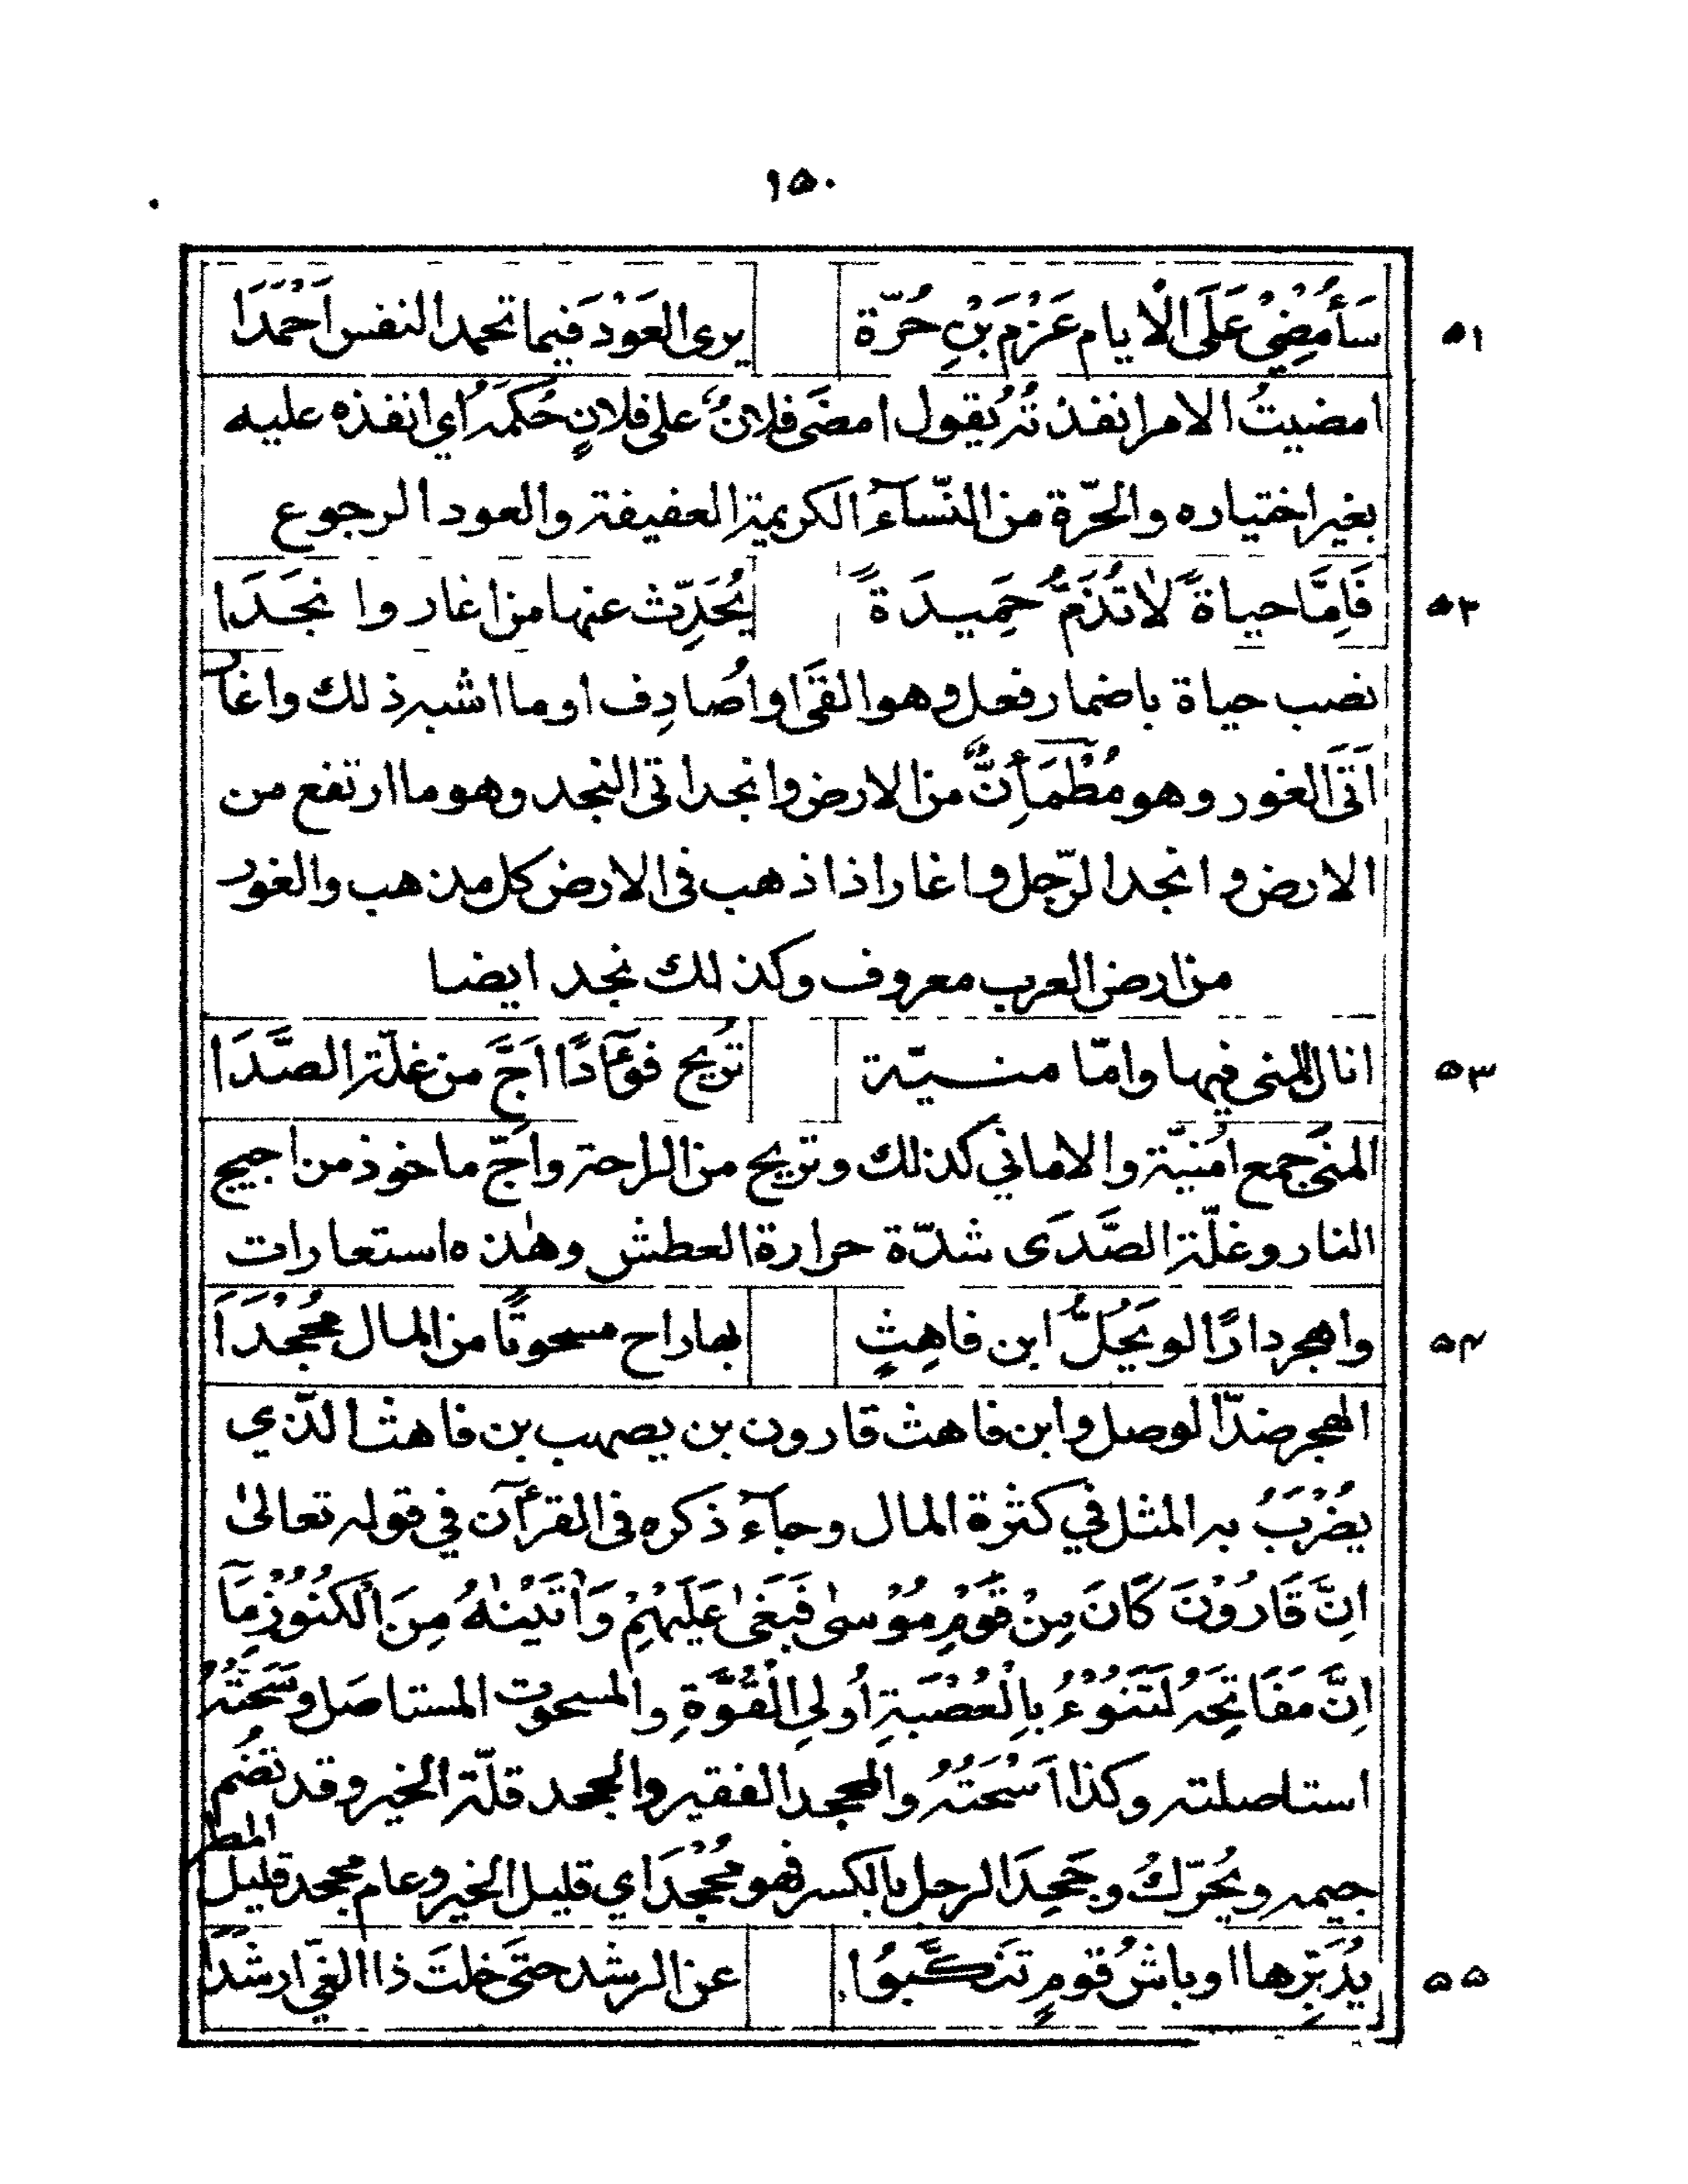 ١٥٠
سَأُمْضِيْ عَلَى الْايام عَزْمَ بْنِ حُرّة يرى العَوْدَ فيما تحمد النفس اَحْمَدَا ٥١
امضيتُ الامر انفذ تُه يقول امضَى فلانٌ على فلانٍ حُكمَهُ اي انفذه عليه
بغير اختياره والحرّة من النّسآء الكريمة العفيفة والعود الرجوع
فَاِمَّا حياةً لاتُذَمُّ حَمِيدَةً يُحَدِّث عنها من اغار وا نجَدَا ٥٢
نصب حياة باضمار فعل وهو القَى او اُصادِف او ما اشبه ذلك واغار
اَتَى الغور وهو مُطْمَأِنٌّ من الارض وانجد اتى النجد وهو ما ارتفع من
الارض و انجد الرّجل واغار اذا ذهب فى الارض كل مذهب والغور
من ارض العرب معروف وكذلك نجد ايضا
انال المنى فيها وامّا منسيّة تُريح فوءادًا اَجَّ من غلّة الصَّدَا ٥٣
المنَى جمع اُمنيّة والامانيّ كذلك وتريح من الراحة واجّ ماخوذ من اجيج
النار وغلّة الصَّدَى شدّة حرارة العطش وهٰذه استعارات
واهجر دارًا لو يَحُلُّ ابن فاهِثٍ بها راح مسحوتًا من المال مُجْحَدَا ٥٤
الهجر ضدّ الوصل وابن فاهث قارون بن يصهب بن فاهث الّذي
يُضْرَبُ به المثل في كثرة المال وجآء ذكره فى القرآن في قوله تعالىٰ
اِنَّ قَارُوْنَ كَانَ مِنْ قَوْمِ مُوْسىٰ فَبَغىٰ عَلَيْهِمْ وَاٰتَيْنٰهُ مِنَ الْكُنُوْزِ مَآ
اِنَّ مَفَاتِحَهُ لَتَنُوْءُ بِالْعُصْبَةِ اُولِي الْقُوَّةِ والمسحوت المستاصَل وسَحَتُّهُ
استاصلته وكذا اَسْحَتُهُ والمجحد الفقير والجحد قلّة الخير وقد تضُم
جيمه ويُحَرّكُ وجَحِدَ الرجل بالكسر فهو مُجْحَد اي قليل الخير وعام مجحد قليل المطر
يُدَبِّرها اوباشُ قومٍ تَنَكَّبُوا عن الرشد حتَى خلتَ ذا الغيّ ارشَدَا ٥٥